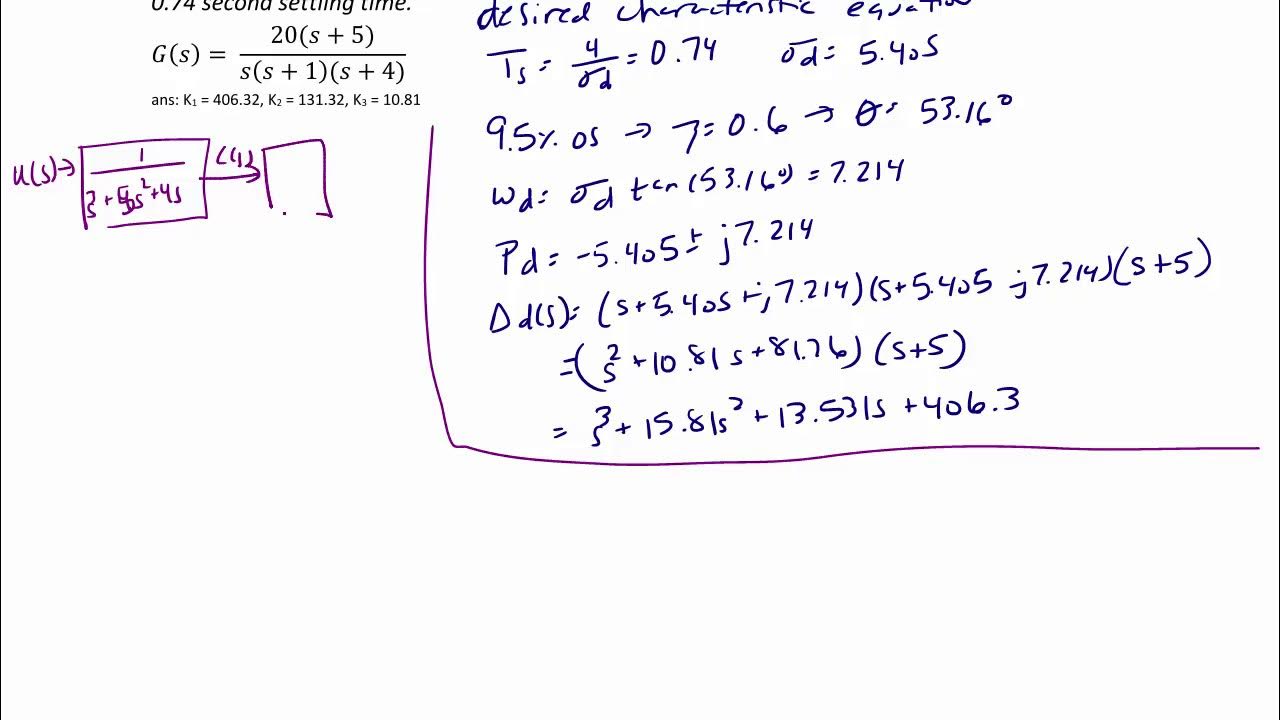 0.74 second settling time.
G(s) = 20(s + 5) / s(s + 1)(s + 4)
ans: K₁ = 406.32, K₂ = 131.32, K₃ = 10.81
U(s) → 1 / s³ + 5s² + 4s C(s)
desired characteristic equation
Ts = 4/σd = 0.74 σd = 5.405
9.5% OS → ζ = 0.6 → θ = 53.16°
ωd = σd tan(53.16°) = 7.214
Pd = -5.405 ± j7.214
Δd(s) = (s+5.405 + j7.214)(s+5.405 - j7.214)(s+5)
= (s² + 10.81s + 81.26)(s+5)
= s³ + 15.81s² + 13.531s + 406.3